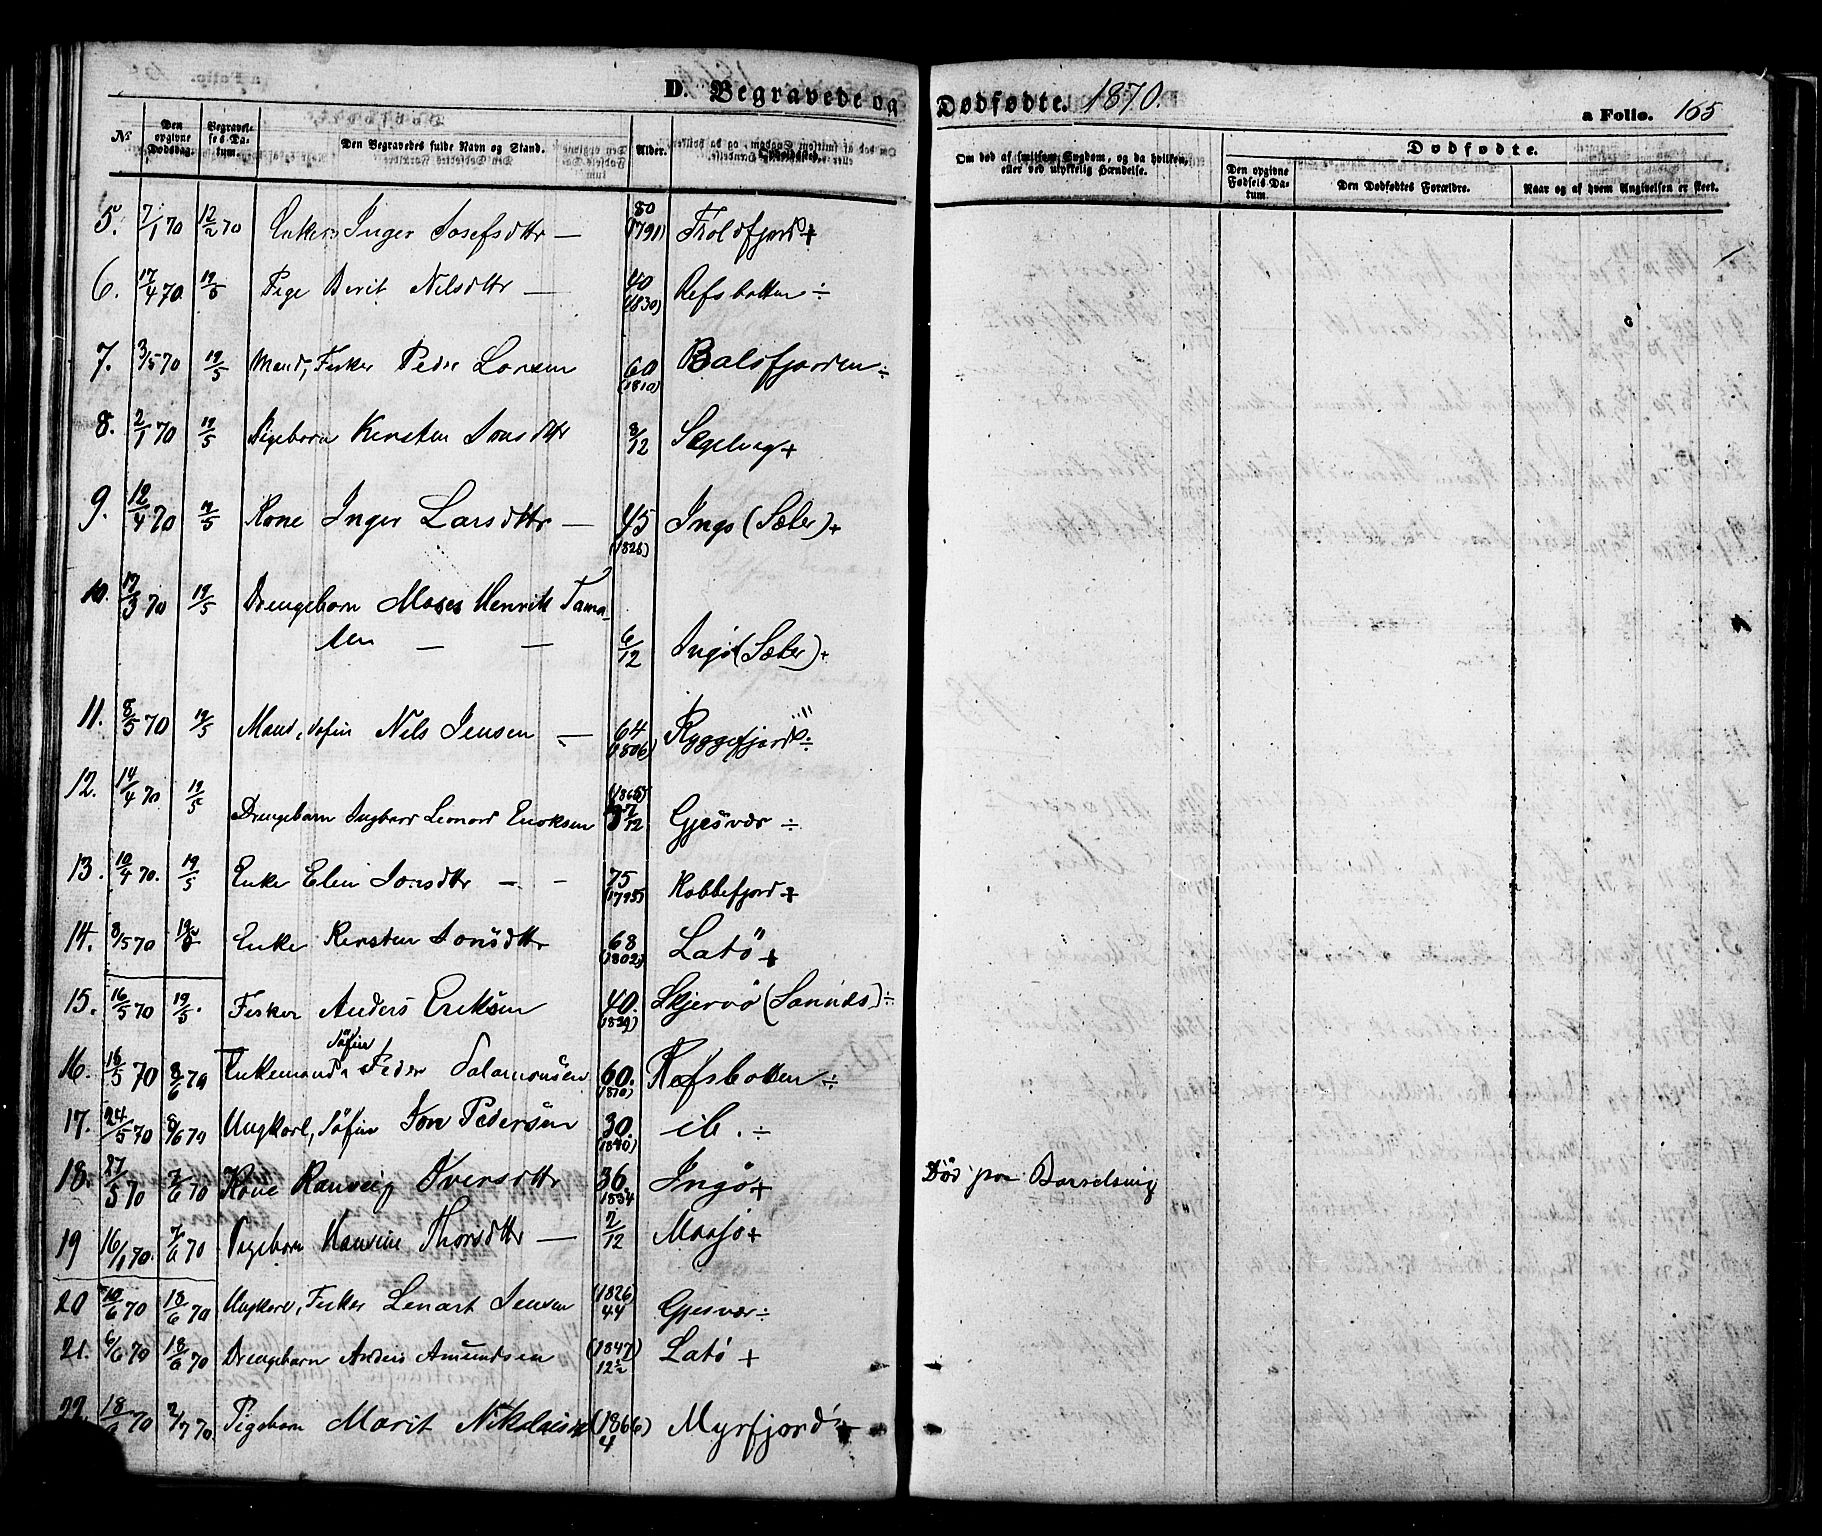 D. Begravede og Dødfødte. 1870. a Folio. 165
No
Den opgivne Dødsdag.
Begravelsens Datum.
Den Begravedes fulde Navn og Stand.
Alder.
Opholdssted.
Om død af smitsom Sygdom, og da hvilken, eller ved ulykkelig Hændelse.
Dødfødte.
Den opgivne Fødsels Datum.
Den Dødfødtes Forældre.
Naar og af hvem Angivelsen er skeet.
5. 7/1 70 12/2 70 Enke Inger Josefsdttr — 80 (1791) Troldfjord +
6. 17/4 70 19/5 Pige Berit Nilsdttr — 40 (1830) Refsbotten ÷
7. 3/5 70 19/5 Mand, Fisker Peder Larsen 60 (1810) Balsfjorden ÷
8. 2/1 70 19/5 Pigebarn Kirsten Jonsdttr 8/12 Slgelvag +
9. 12/4 70 19/5 Kone Inger Larsdttr — 45 (1826) Ingø (Sæter) +
10. 17/3 70 19/5 Drengebarn Moses Henrik Tama-
sen — — 6/12 Ingø (Sæter) +
11. 8/5 70 19/5 Mand, Søfin Nils Jensen — 64 (1806) Ryggefjord ÷
12. 14/4 70 19/5
Drengebarn Ingbart Leonard Enoksen 7/12 Gjesvær ÷
13. 10/4 70. 19/5 Enke Elen Jonsdttr — - 75 (1795) Kobbefjord +
14. 8/5 70 19/5 Enke Kirsten Jonsdttr 68 (1802) Latø +
15. 16/5 70 19/5. Fisker Anders Eriksen 40. (1829) Skjervø (Sannes) ÷
Søfin
16. 18/5 70 8/6 70 Enkemand Peder Salamonsen 60. (1810) Refsbotten ÷
17. 24/5 70 8/6 70 Ungkarl, Søfin Jon Pedersen 30. (1840) ib. ÷
18. 27/5 70 7/6 70 Kone Ranveig Iversdttr 36. 1834 Ingø + Død paa Barselseng
19 16/1 70. 7/6 70 Pigebarn Hansine Thorsdttr — 2/12 Maasø +
20 10/6 70 18/6 70 Ungkarl, Fisker Lenart Jensen (1826) 44 Gjesvær ÷
21. 6/6 70 18/6 70 Drengebarn Anders Amundsen (1847) 12½ Latø +
22. 18/ 70 2/7 70 Pigebarn Marit Nikolais (1866) 4 Myrfjord